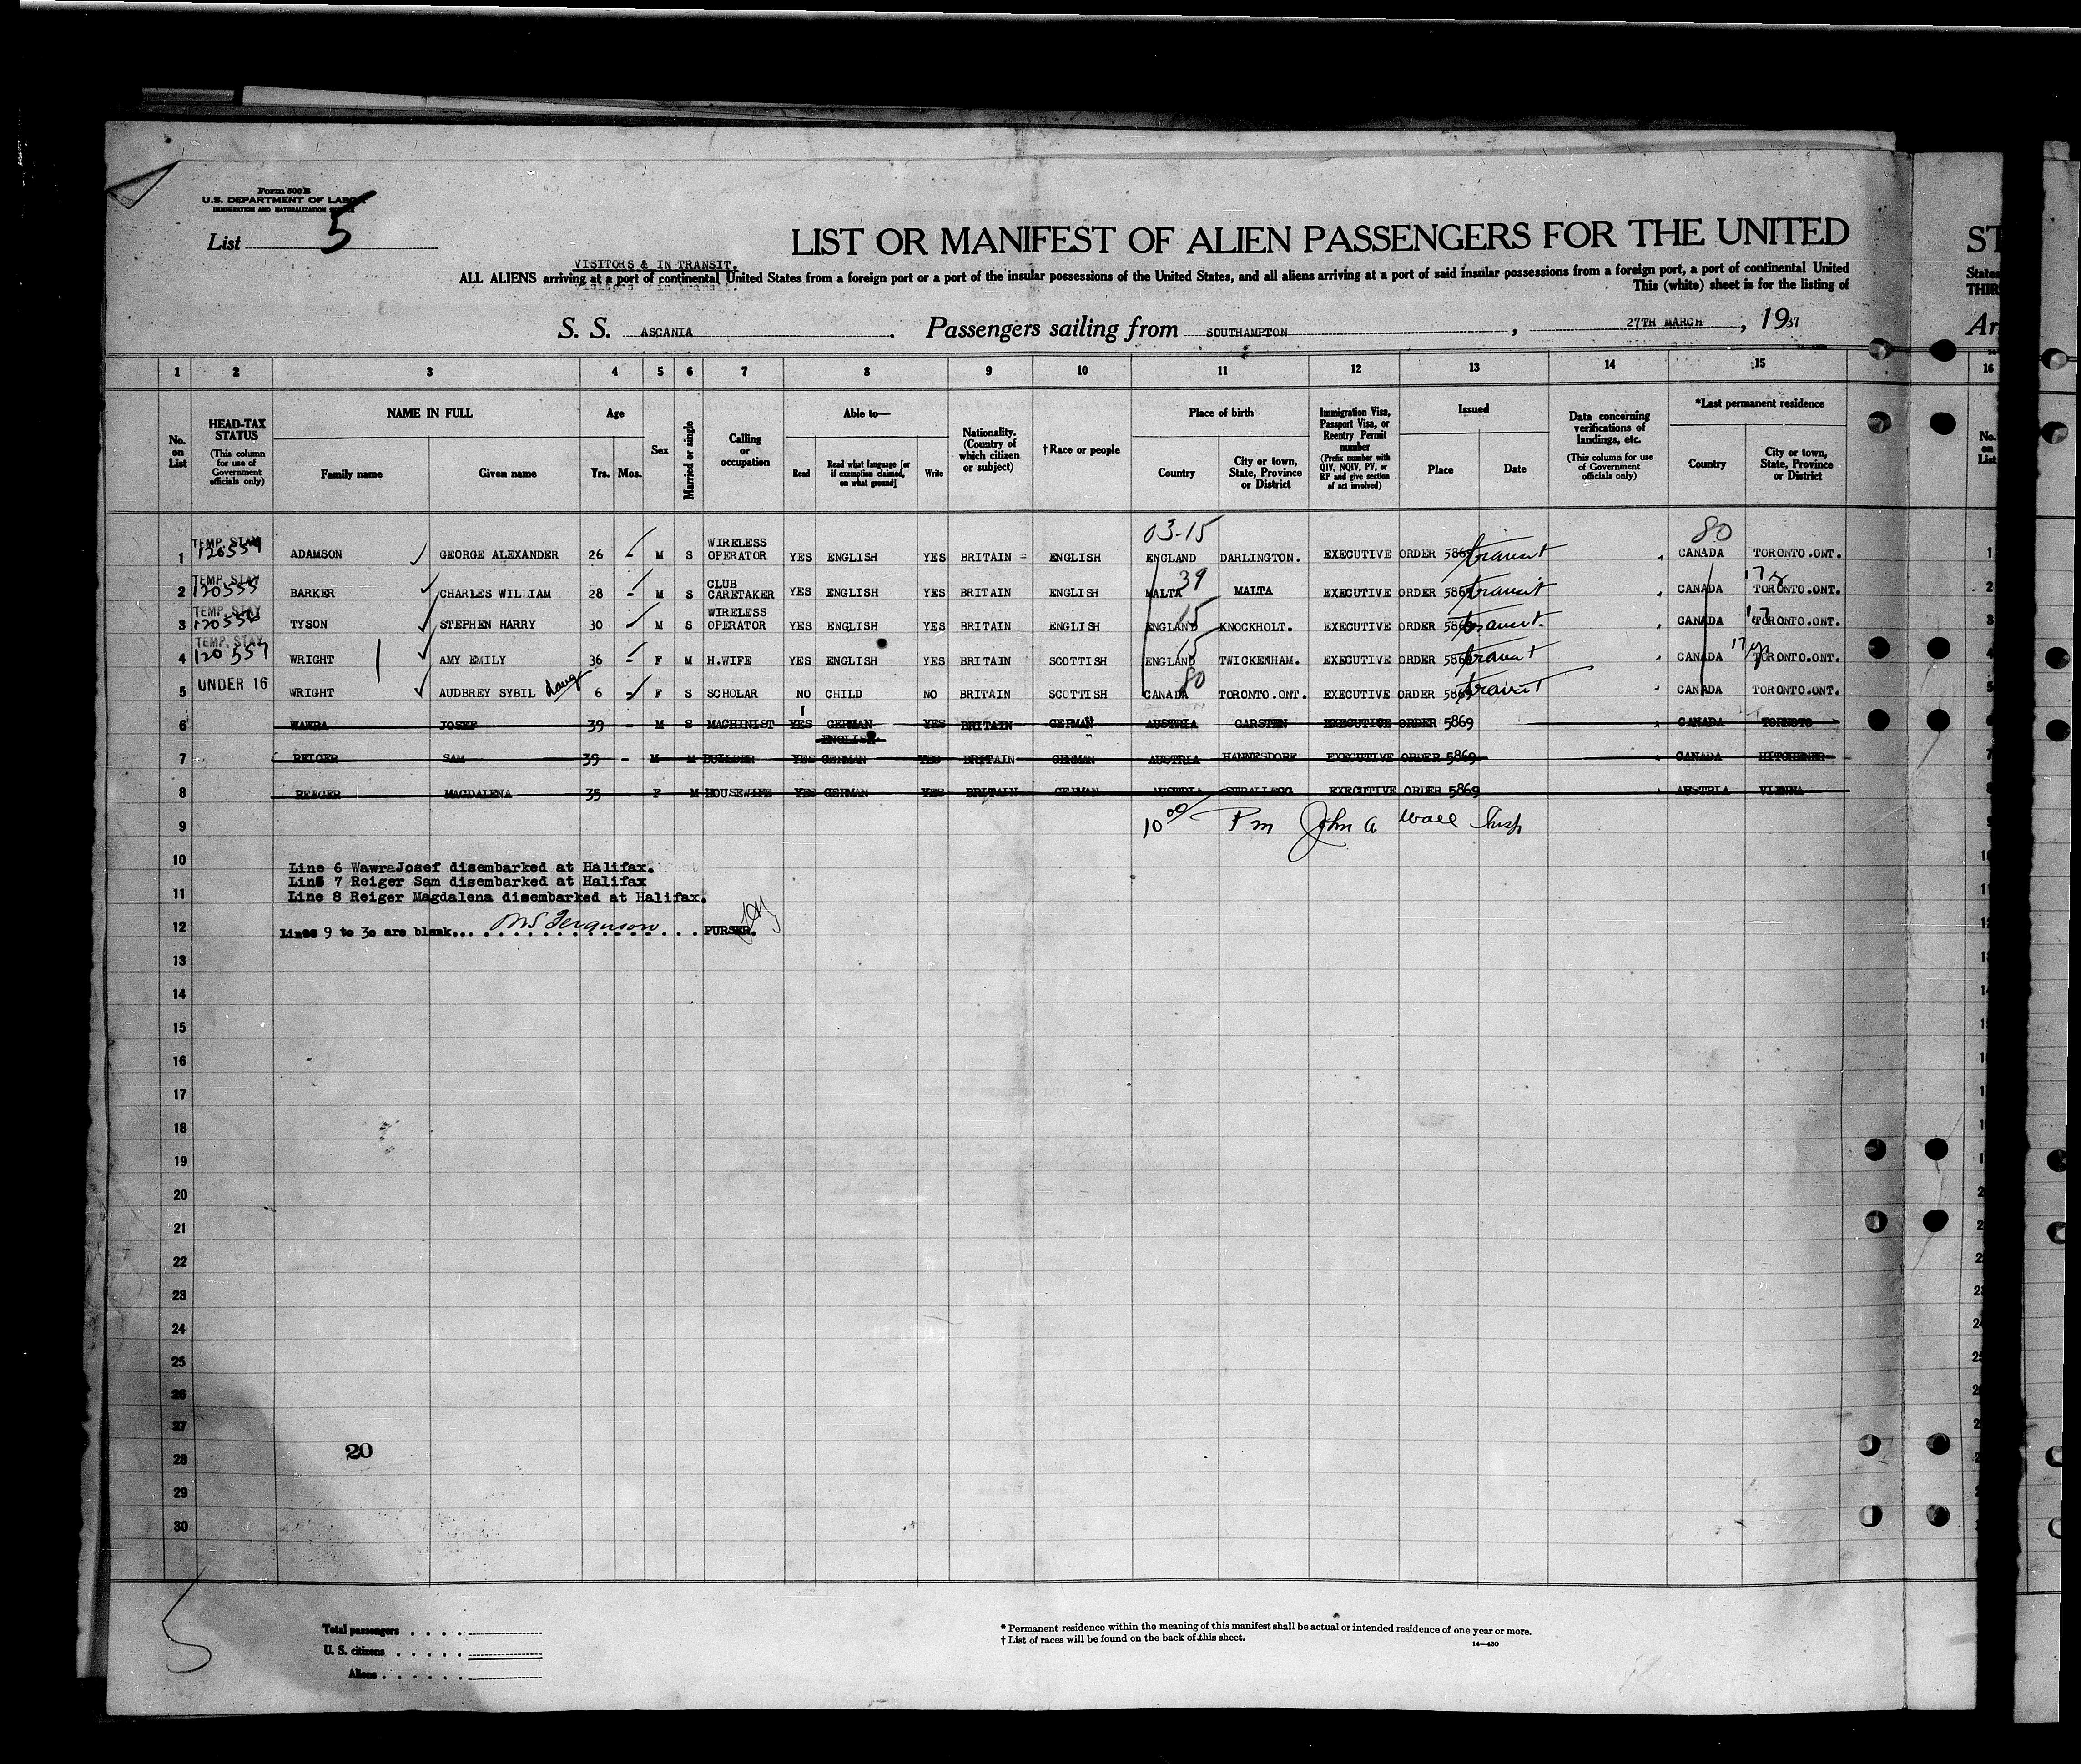 Form 500 B
U.S. DEPARTMENT OF LABOR
IMMIGRATION AND NATURALIZATION SERVICE
List 5
LIST OR MANIFEST OF ALIEN PASSENGERS FOR THE UNITED
ST
VISITORS & IN TRANSIT.
ALL ALIENS arriving at a port of continental United States from a foreign port or a port of the insular possessions of the United States, and all aliens arriving at a port of said insular possessions from a foreign port, a port of continental United
States
This (white) sheet is for the listing of
THIR
S. S. ASCANIA. Passengers sailing from SOUTHAMPTON, 27TH MARCH, 1937
Ar
1 2 3 4 5 6 7 8 9 10 11 12 13 14 15 16
No. on List
HEAD-TAX STATUS (This column for use of Government officials only)
NAME IN FULL
Family name Given name
Age
Yrs. Mos.
Sex
Married or single
Calling or occupation
Able to—
Read Read what language [or if exemption claimed, on what ground] Write
Nationality. (Country of which citizen or subject)
† Race or people
Place of birth
Country City or town, State, Province or District
Immigration Visa, Passport Visa, or Reentry Permit number (Prefix number with QIV, NQIV, PV, or RP and give section of act involved)
Issued
Place Date
Data concerning verifications of landings, etc. (This column for use of Government officials only)
*Last permanent residence
Country City or town, State, Province or District
No. on List
03-15 80
1 TEMP. STAY 120554 ADAMSON GEORGE ALEXANDER 26 - M S WIRELESS OPERATOR YES ENGLISH YES BRITAIN ENGLISH ENGLAND DARLINGTON. EXECUTIVE ORDER 5869 transit CANADA TORONTO.ONT. 1
2 TEMP. STAY 120555 BARKER CHARLES WILLIAM 28 - M S CLUB CARETAKER YES ENGLISH YES BRITAIN ENGLISH MALTA 39 MALTA EXECUTIVE ORDER 5869 transit CANADA TORONTO.ONT. 2
3 TEMP. STAY 120556 TYSON STEPHEN HARRY 30 - M S WIRELESS OPERATOR YES ENGLISH YES BRITAIN ENGLISH ENGLAND 15 KNOCKHOLT. EXECUTIVE ORDER 5869 transit. CANADA 17 TORONTO.ONT. 3
4 TEMP. STAY 120557 WRIGHT AMY EMILY 36 - F M H.WIFE YES ENGLISH YES BRITAIN SCOTTISH ENGLAND 15 TWICKENHAM. EXECUTIVE ORDER 5869 transit CANADA TORONTO.ONT. 4
5 UNDER 16 WRIGHT AUDBREY SYBIL daug 6 - F S SCHOLAR NO CHILD NO BRITAIN SCOTTISH CANADA 80 TORONTO.ONT. EXECUTIVE ORDER 5869 transit CANADA TORONTO.ONT. 5
6 WAWRA JOSEF 39 - M S MACHINIST YES GERMAN ENGLISH YES BRITAIN GERMAN AUSTRIA GARSTEN EXECUTIVE ORDER 5869 CANADA TORNOTO 6
7 REIGER SAM 39 - M M BUILDER YES GERMAN YES BRITAIN GERMAN AUSTRIA HANNESDORF EXECUTIVE ORDER 5869 CANADA HITCHENER 7
8 REIGER MAGDALENA 35 F M HOUSEWIFE YES GERMAN YES BRITAIN GERMAN AUSTRIA STRALLEGG EXECUTIVE ORDER 5869 AUSTRIA VIENNA 8
9 10 00 Pm John A Wall Insp 9
10
Line 6 WawraJosef disembarked at Halifax.
Line 7 Reiger Sam disembarked at Halifax
11
Line 8 Reiger Magdalena disembarked at Halifax.
12
Lines 9 to 30 are blank... Ferguson PURSER.
13
14
15
16
17
18
19
20
21
22
23
24
25
26
27
20
28
29
30
Total passengers
U. S. citizens
Aliens
* Permanent residence within the meaning of this manifest shall be actual or intended residence of one year or more.
† List of races will be found on the back of this sheet.
14—430
5